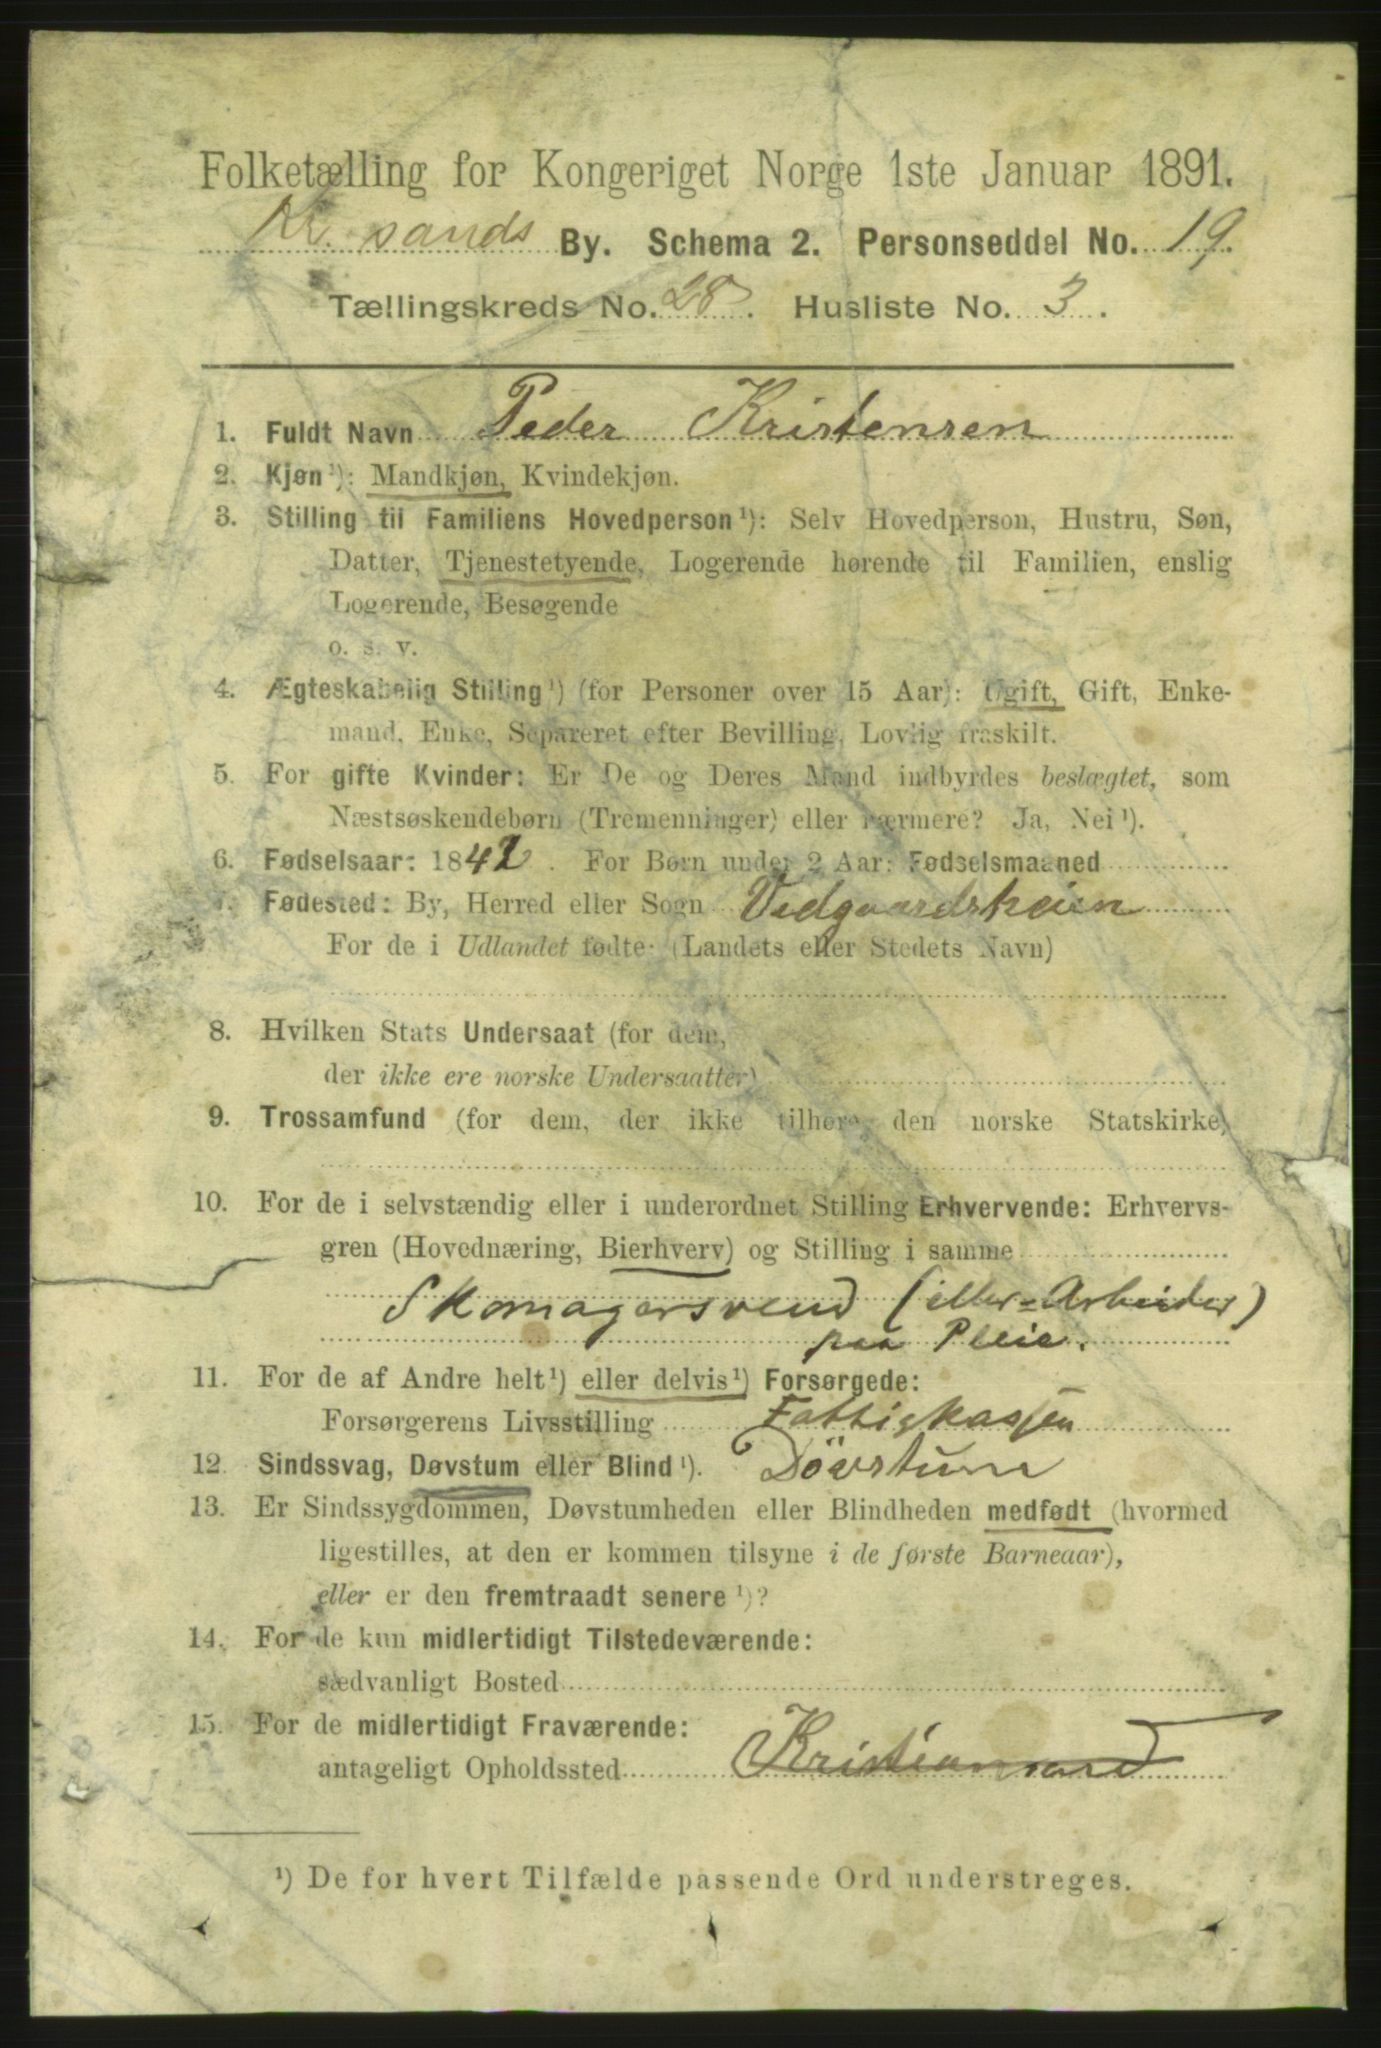 Folketælling for Kongeriget Norge 1ste Januar 1891.
Kr. sands By. Schema 2. Personseddel No. 19.
Tællingskreds No. 28. Husliste No. 3.
1. Fuldt Navn Peder Kristensen
2. Kjøn¹): Mandkjøn, Kvindekjøn.
3. Stilling til Familiens Hovedperson¹): Selv Hovedperson, Hustru, Søn,
Datter, Tjenestetyende, Logerende hørende til Familien, enslig
Logerende, Besøgende
o. s. v.
4. Ægteskabelig Stilling¹) (for Personer over 15 Aar): Ugift, Gift, Enke-
mand, Enke, Separeret efter Bevilling, Lovlig fraskilt.
5. For gifte Kvinder: Er De og Deres Mand indbyrdes beslægtet, som
Næstsøskendebørn (Tremenninger) eller nærmere? Ja, Nei¹).
6. Fødselsaar: 1842. For Børn under 2 Aar: Fødselsmaaned
7. Fødested: By, Herred eller Sogn Vedgaardsheien
For de i Udlandet fødte: (Landets eller Stedets Navn)
8. Hvilken Stats Undersaat (for dem,
der ikke ere norske Undersaatter)
9. Trossamfund (for dem, der ikke tilhøre den norske Statskirke)
10. For de i selvstændig eller i underordnet Stilling Erhvervende: Erhvervs-
gren (Hovednæring, Bierhverv) og Stilling i samme
Skomagersvend (eller=Arbeider)
paa Pleie.
11. For de af Andre helt¹) eller delvis¹) Forsørgede:
Forsørgerens Livsstilling Fattigkassen
12. Sindssvag, Døvstum eller Blind¹). Dövstum
13. Er Sindssygdommen, Døvstumheden eller Blindheden medfødt (hvormed
ligestilles, at den er kommen tilsyne i de første Barneaar),
eller er den fremtraadt senere¹)?
14. For de kun midlertidigt Tilstedeværende:
sædvanligt Bosted
15. For de midlertidigt Fraværende:
antageligt Opholdssted Kristiansand
¹) De for hvert Tilfælde passende Ord understreges.